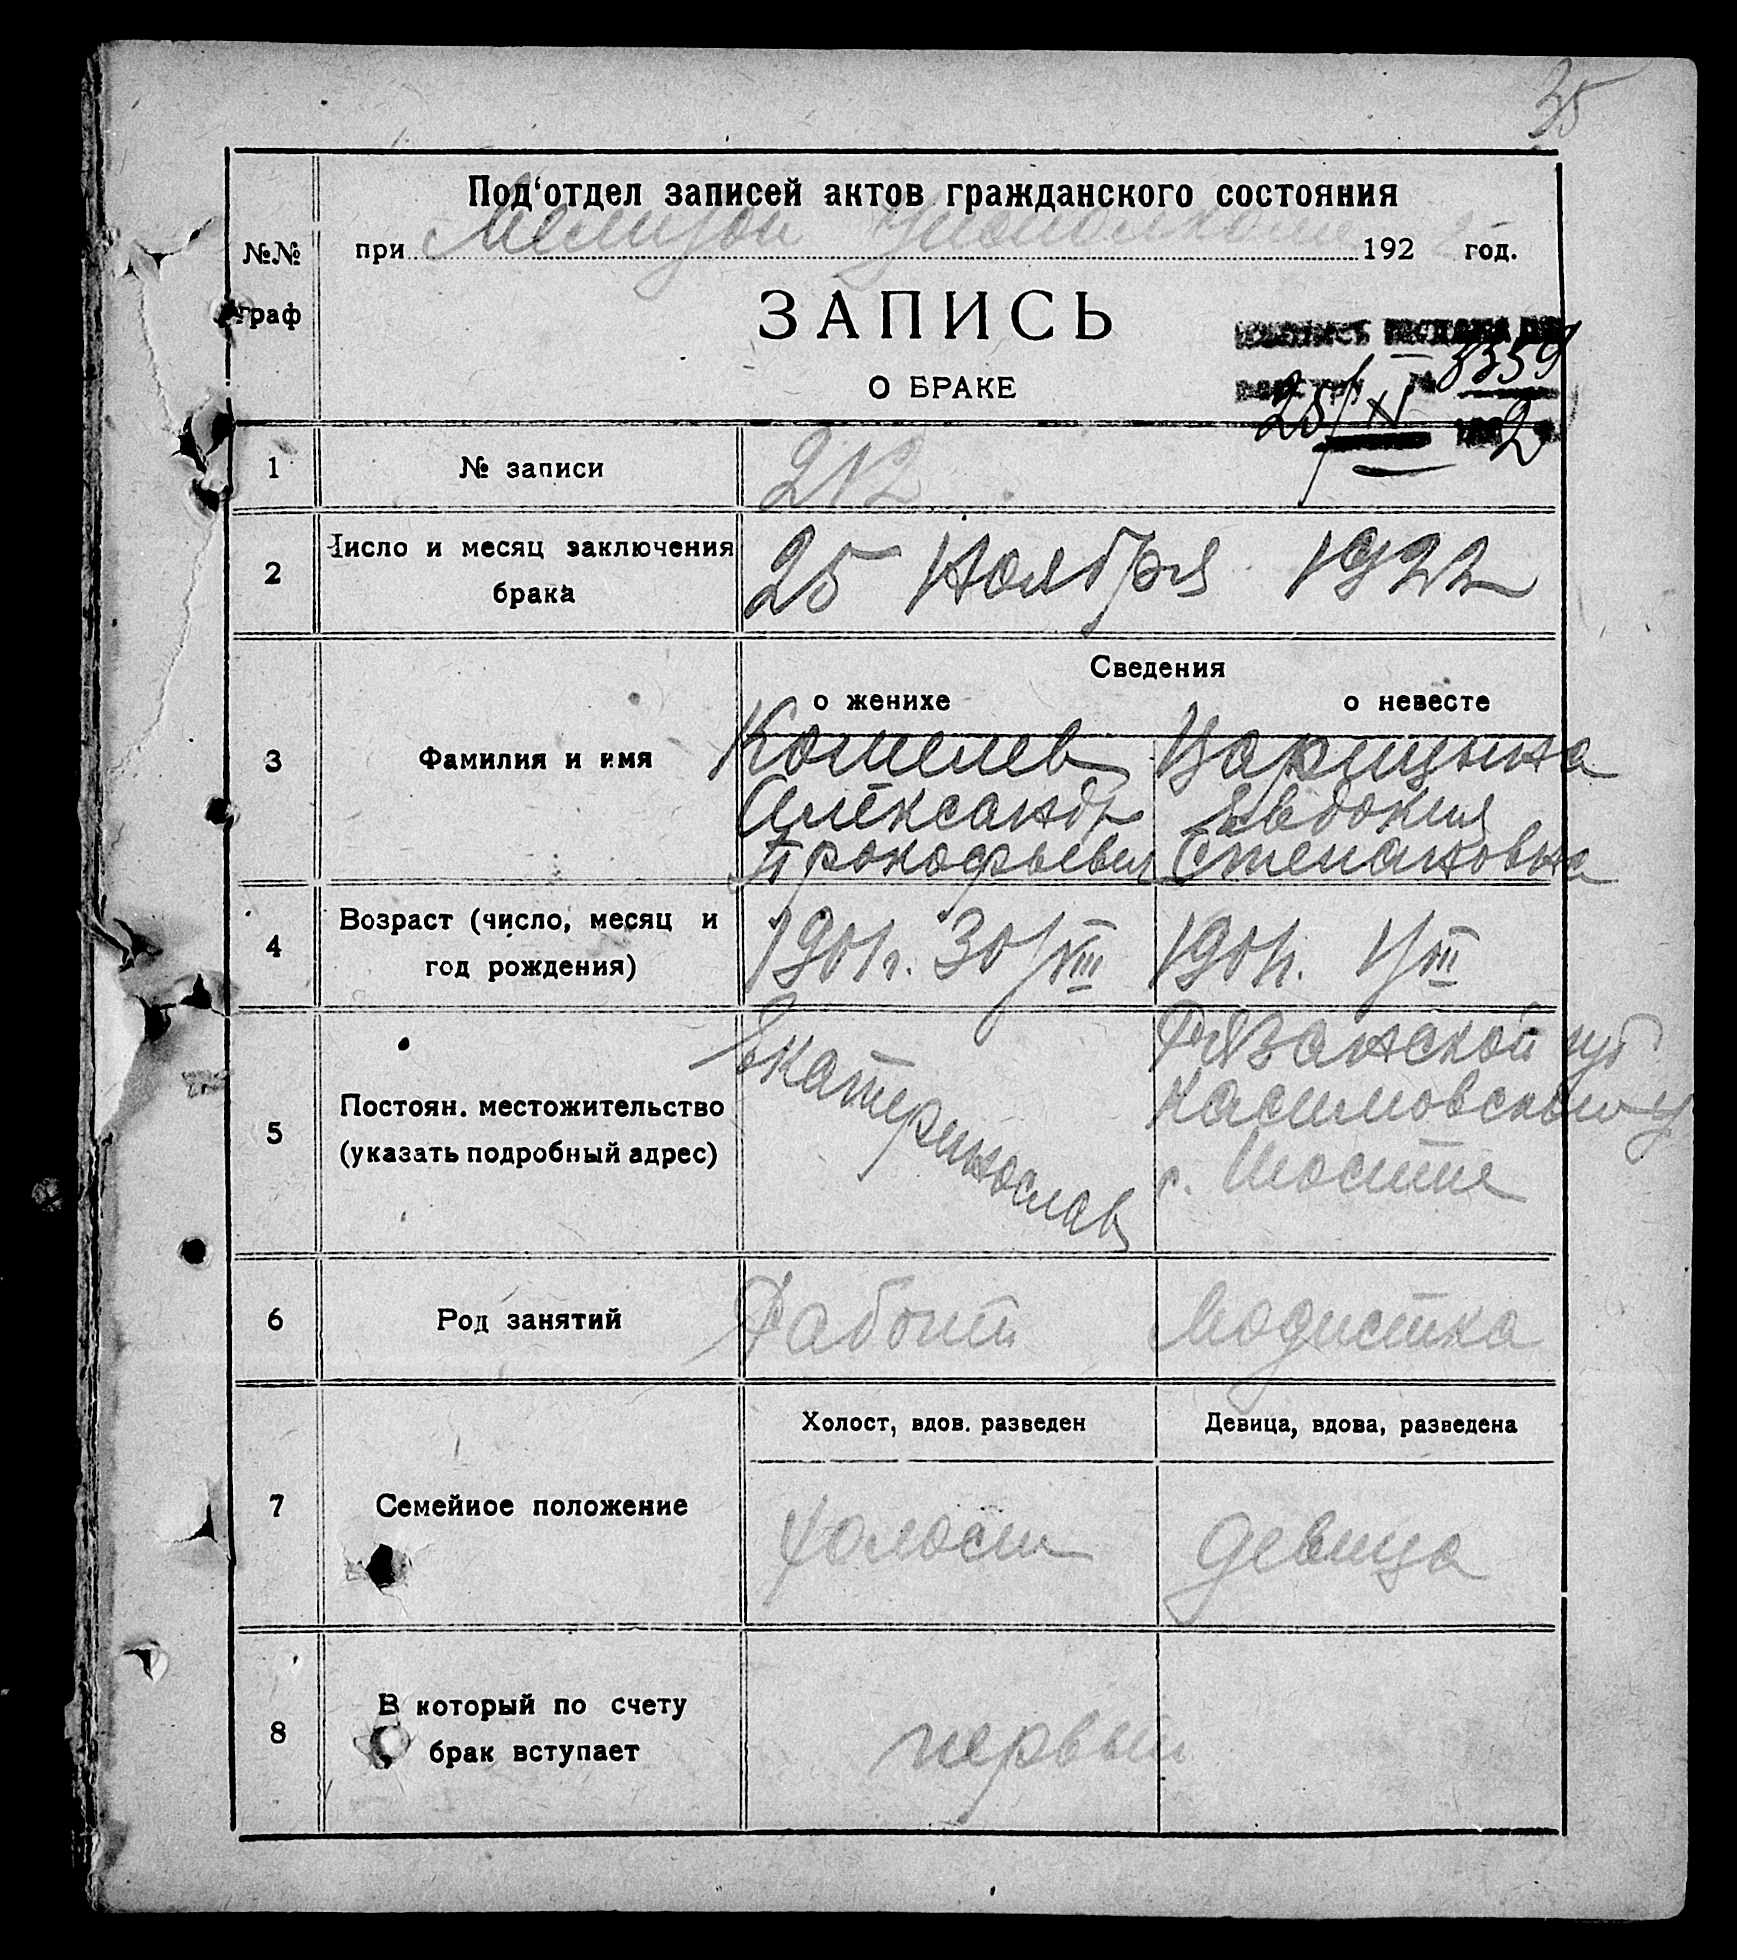 35
Под‘отдел записей актов гражданского состояния
№№ граф
при 192 год.
ЗАПИСЬ
3359
О БРАКЕ
25/XI 192
1 № записи 212
2 Число и месяц заключения брака 25 Ноября 1922
Сведения
о женихе о невесте
3 Фамилия и имя Кошелев
Александр Евдокия
Прокофьевич Степановна
4 Возраст (число, месяц и год рождения) 1901г. 30/VIII 1901г. 1/III
Екатеринослав Рязанской губ
5 Постоян. местожительство Касимовского у
(указать подробный адрес) с.
6 Род занятий Модистка
Холост, вдов. разведен Девица, вдова, разведена
7 Семейное положение холост девица
8 В который по счету брак вступает первый